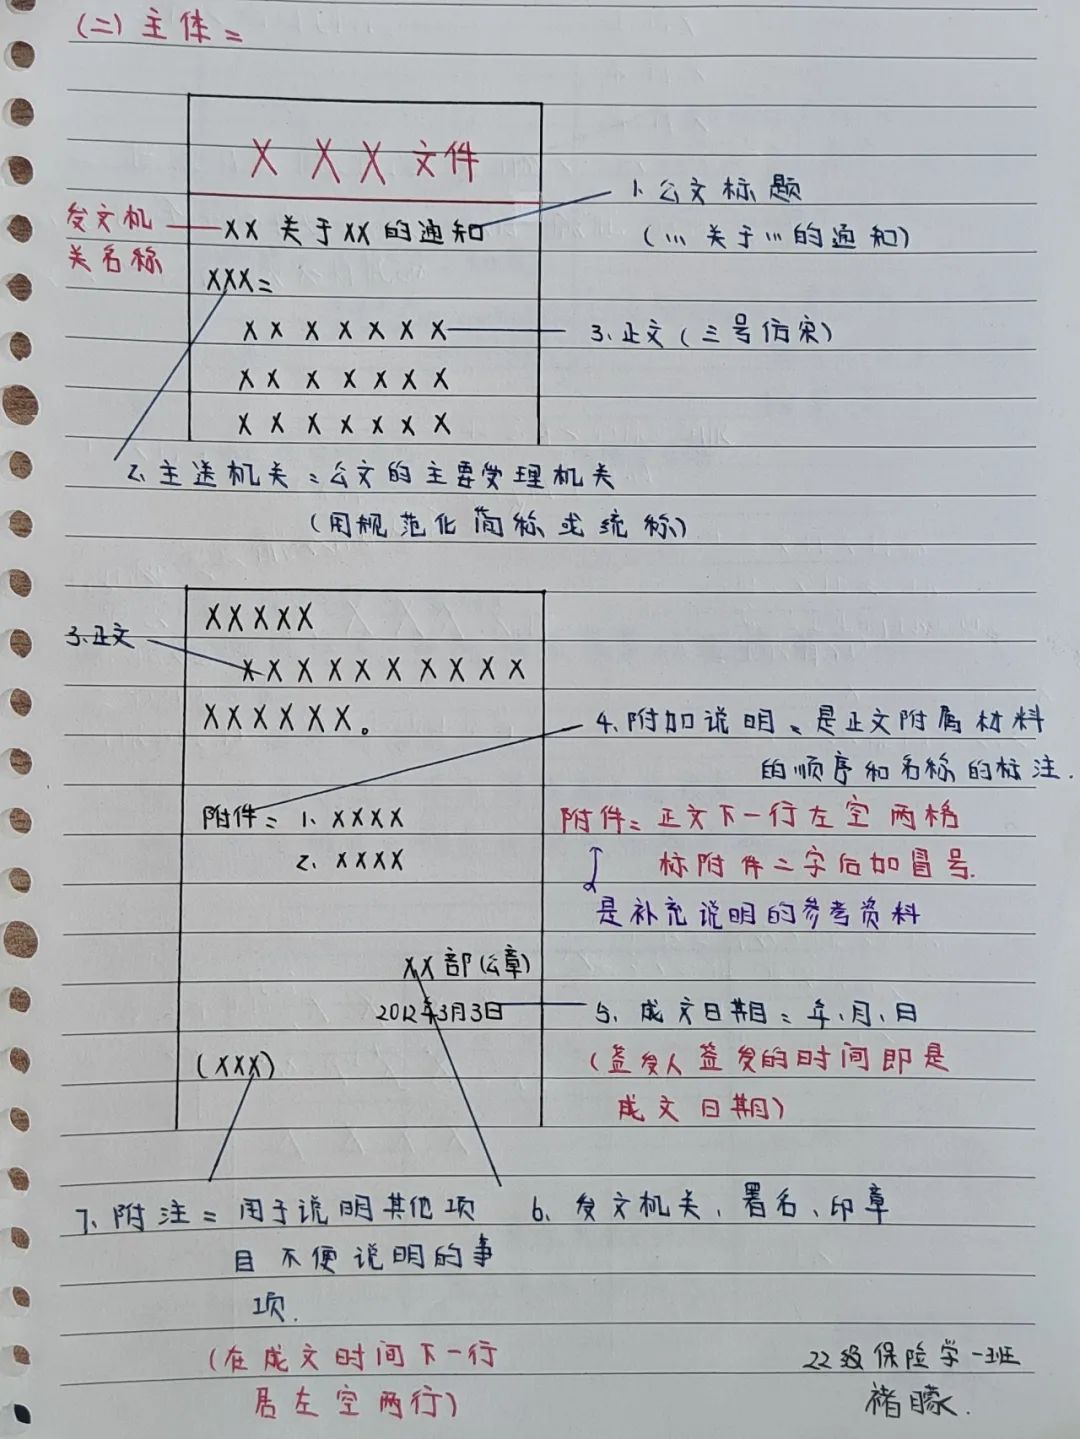 (二)主体：
XXX文件
1、公文标题
发文机
XX关于XX的通知
(...关于...的通知)
关名称
XXX：
XXXXXXX
3、正文(三号仿宋)
XXXXXXX
XXXXXXX
2、主送机关：公文的主要受理机关
(用规范化简称或统称)
XXXXX
3、正文
XXXXXXXXXX
XXXXXX。
4、附加说明、是正文附属材料
的顺序和名称的标注.
附件：1、XXXX
附件：正文下一行左空两格
2、XXXX
标附件二字后加冒号.
是补充说明的参考资料
XX部(公章)
2012年3月3日
5、成文日期：年、月、日
(XXX)
(签发人签发的时间即是
成文日期)
7、附注：用于说明其他项
6、发文机关、署名、印章
目不便说明的事
项.
(在成文时间下一行
居左空两行)
22级保险学一班
褚曚.